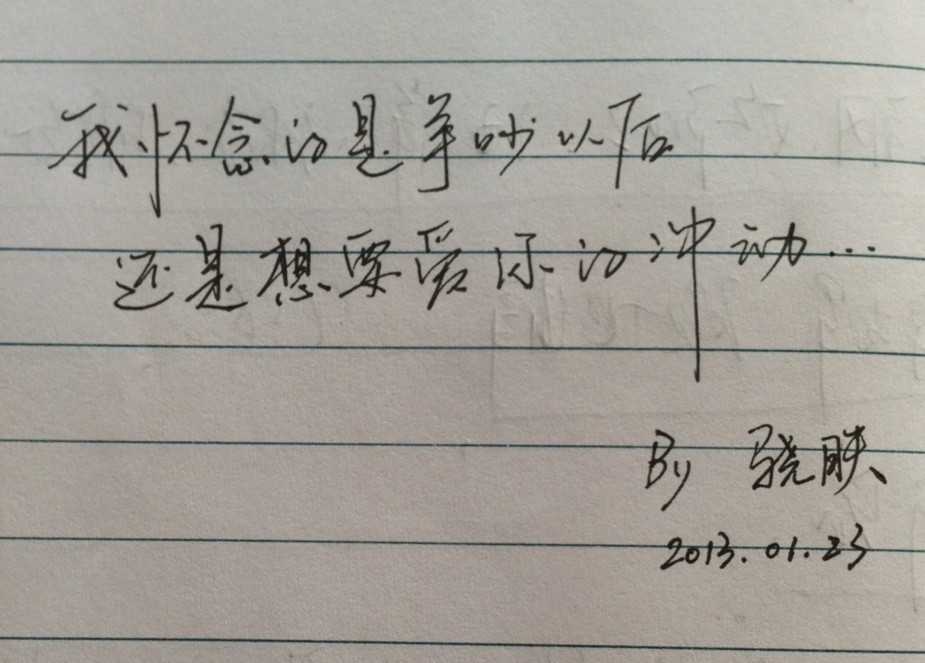 我怀念的是争吵以后
还是想要爱你的冲动...
By 骁
2013.01.23